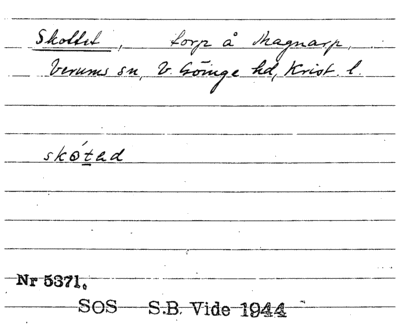 Skottet, torp å Magnarp,
Verums sn, V. Göinge hd, Krist. l.
skótad
Nr 5371.
SOS S.B. Vide 1944